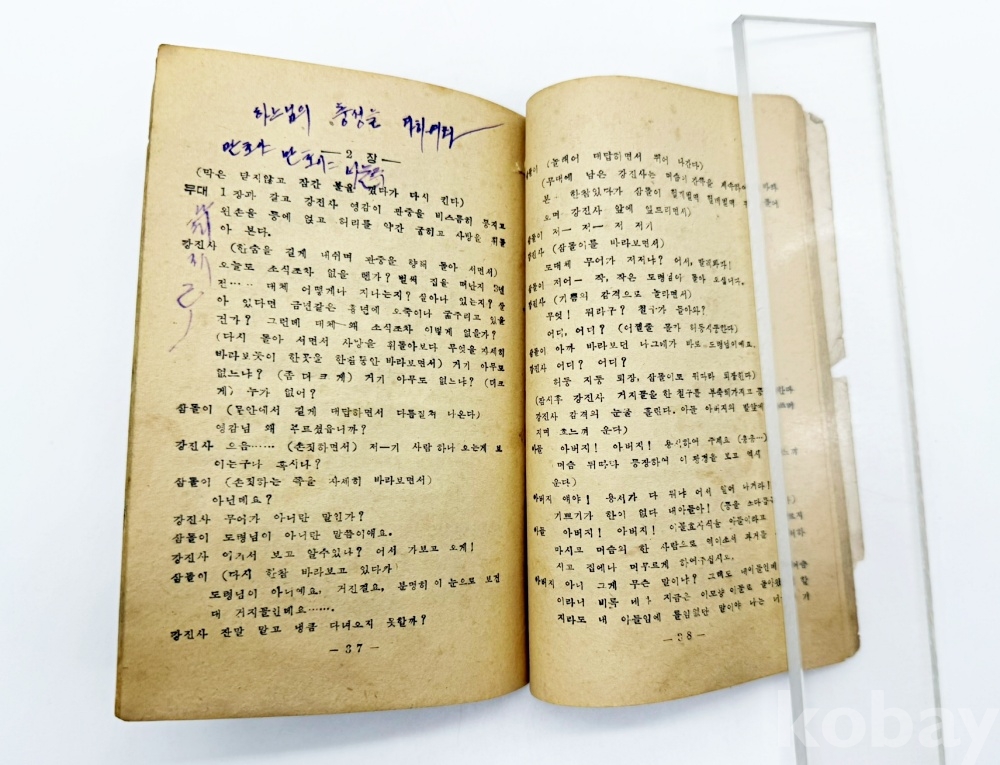 하느님의 충성을 다하여라
만호사 만호사
—2 장—
(막은 닫지않고 잠간 불을 껐다가 다시 킨다)
무대 1 장과 같고 강진사 영감이 관중을 비스듬히 등지고
왼손을 등에 얹고 허리를 약간 굽히고 사방을 휘돌
아 본다.
강진사 (한숨을 길게 내쉬며 관중을 향해 돌아 서면서)
오늘도 소식조차 없을 텐가? 벌써 집을 떠난지 3년
전…‥ 대체 어떻게나 지나는지? 살아나 있는지? 살
아 있다면 금년같은 흉년에 오죽이나 굶주리고 있을
건가? 그런데 대체 왜 소식조차 이렇게 없을가?
(다시 돌아 서면서 사방을 휘돌아보다 무엇을 자세히
바라보듯이 한곳을 한참동안 바라보면서) 거기 아무도
없느냐? (좀 더 크 게) 거기 아무도 없느냐? (더크
게) 누가 없어?
삼돌이 (문안에서 길게 대답하면서 다름질쳐 나온다)
영감님 왜 부르셨읍니까?
강진사 으음…… (손짓하면서) 저—기 사람 하나 오는게 보
이는구나 혹시나?
삼돌이 (손짓하는 쪽을 자세히 바라보면서)
아닌데요?
강진사 무어가 아니란 말인가?
삼돌이 도령님이 아니란 말씀이애요.
강진사 이 가서 보고 알수있나? 어서 가보고 오게!
삼돌이 (다시 한참 바라보고 있다가)
도령님이 아니예요, 거진걸요, 분명히 이 눈으로 보건
대 거지들인데요…….
강진사 잔말 말고 냉큼 다녀오지 못할까?
— 37 —
삼돌이 (놀래어 대답하면서 뛰어 나간다)
(무대에 남은 강진사는 머슴이 간쪽을 계속하여 바라
본 한참있다가 삼돌이 헐레벌떡 헐레벌떡
오며 강진사 앞에 엎드리면서)
삼돌이 저— 저— 저 저기
강진사 (삼돌이를 바라보면서)
도대체 무어가 저저냐? 어서, 말해봐라!
삼돌이 저어— 작, 작은 도령님이 돌아 오십니다.
강진사 (기쁨의 감격으로 놀라면서)
무엇! 뭐라구? 철구가 돌아와?
어디, 어디? (어쩔줄 몰라 허둥시둥한다)
삼돌이 아까 바라보던 나그네가 바로 도령님이예요.
강진사 어디? 어디?
허둥 지둥 퇴장, 삼돌이도 뒤따라 퇴장한다)
(잠시후 강진사 거지꼴을 한 철구를 부축해가지고 등장한다
강진사 감격의 눈물 흘린다. 아들 아버지의 발앞에
지며 흐느껴 운다)
아들 아버지! 아버지! 용서하여 주세요 (흥흥…)
머슴 뒤따라 등장하여 이 광경을 보고 역시
운다)
아버지 얘야! 용서가 다 뭐냐 어서 일어 나거라!
기쁘기가 한이 없다 내아들아!
아들 아버지! 아버지! 이불효자식을 아들이라고
마시고 머슴의 한 사람으로 여이소서 과거를
시고 집에나 머무르게 하여주십시오.
아버지 아니 그게 무슨 말이냐? 그래도 내아들인데
이라니 비록 네가 지금은 이모양 이꼴로 돌아왔
지라도 내 아들임에 틀림없단 말이야 나는
— 38 —
kobay